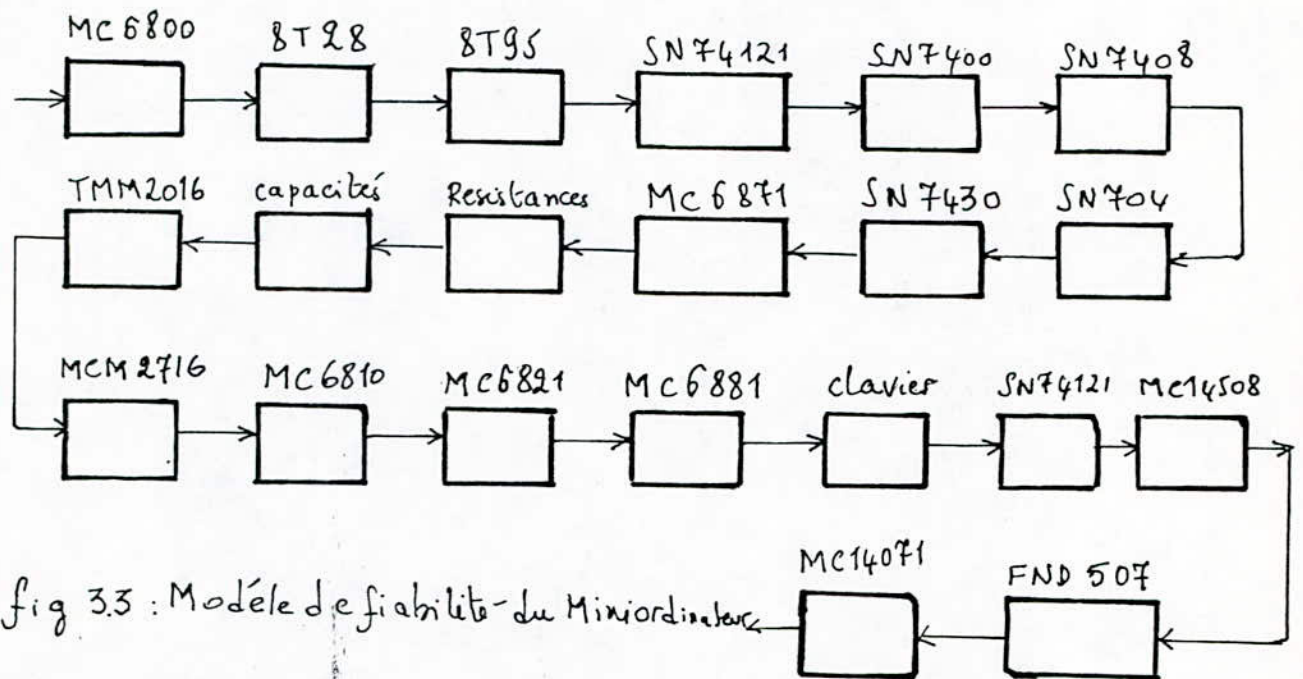 MC 6800 8T28 8T95 SN74121 SN7400 SN7408
TMM2016 capacités Resistances MC6871 SN7430 SN704
MCM2716 MC6810 MC6821 MC6881 clavier SN74121 MC14508
MC14071 FND 507
fig 3.3 : Modéle de fiabilité du Miniordinateur